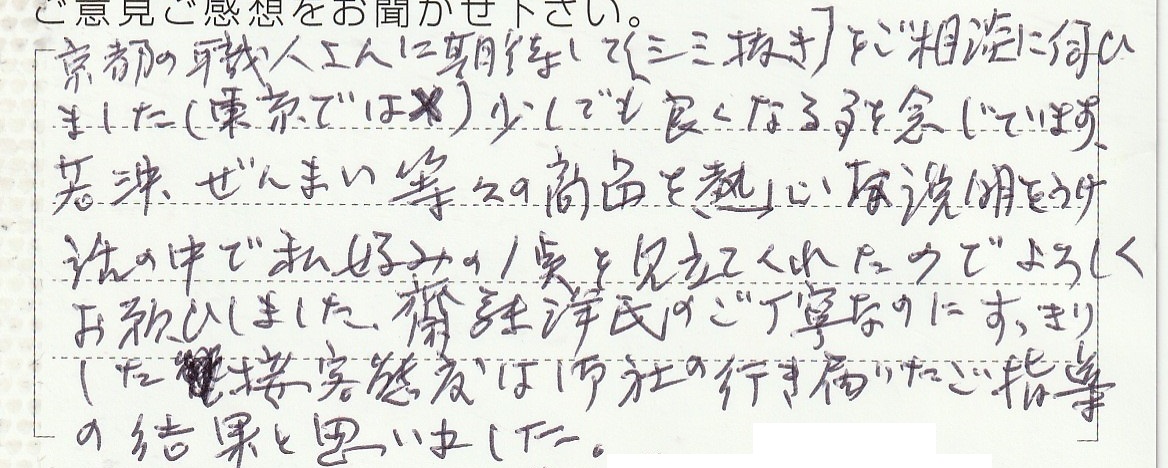 ご意見ご感想をお聞かせ下さい。
京都の職人さんに期待して[シミ抜き]をご相談に伺ひ
ました(東京では✕)少しでも良くなる事を念じています、
若冲、ぜんまい等々の商品を熱心な説明をうけ
話の中で私好みの1点を見立てくれたのでよろしく
お願ひしました、齋藤洋氏のご丁寧なのにすっきり
した接客態度は御社の行き届いたご指導
の結果と思いました。